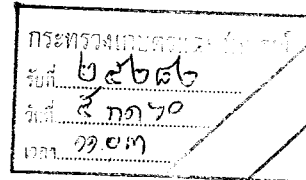 กระทรวงเกษตรและสหกรณ์
รับที่ ๒๕๒๘๒
วันที่ ๕ กค ๖๐
เวลา ๑๑.๐๓